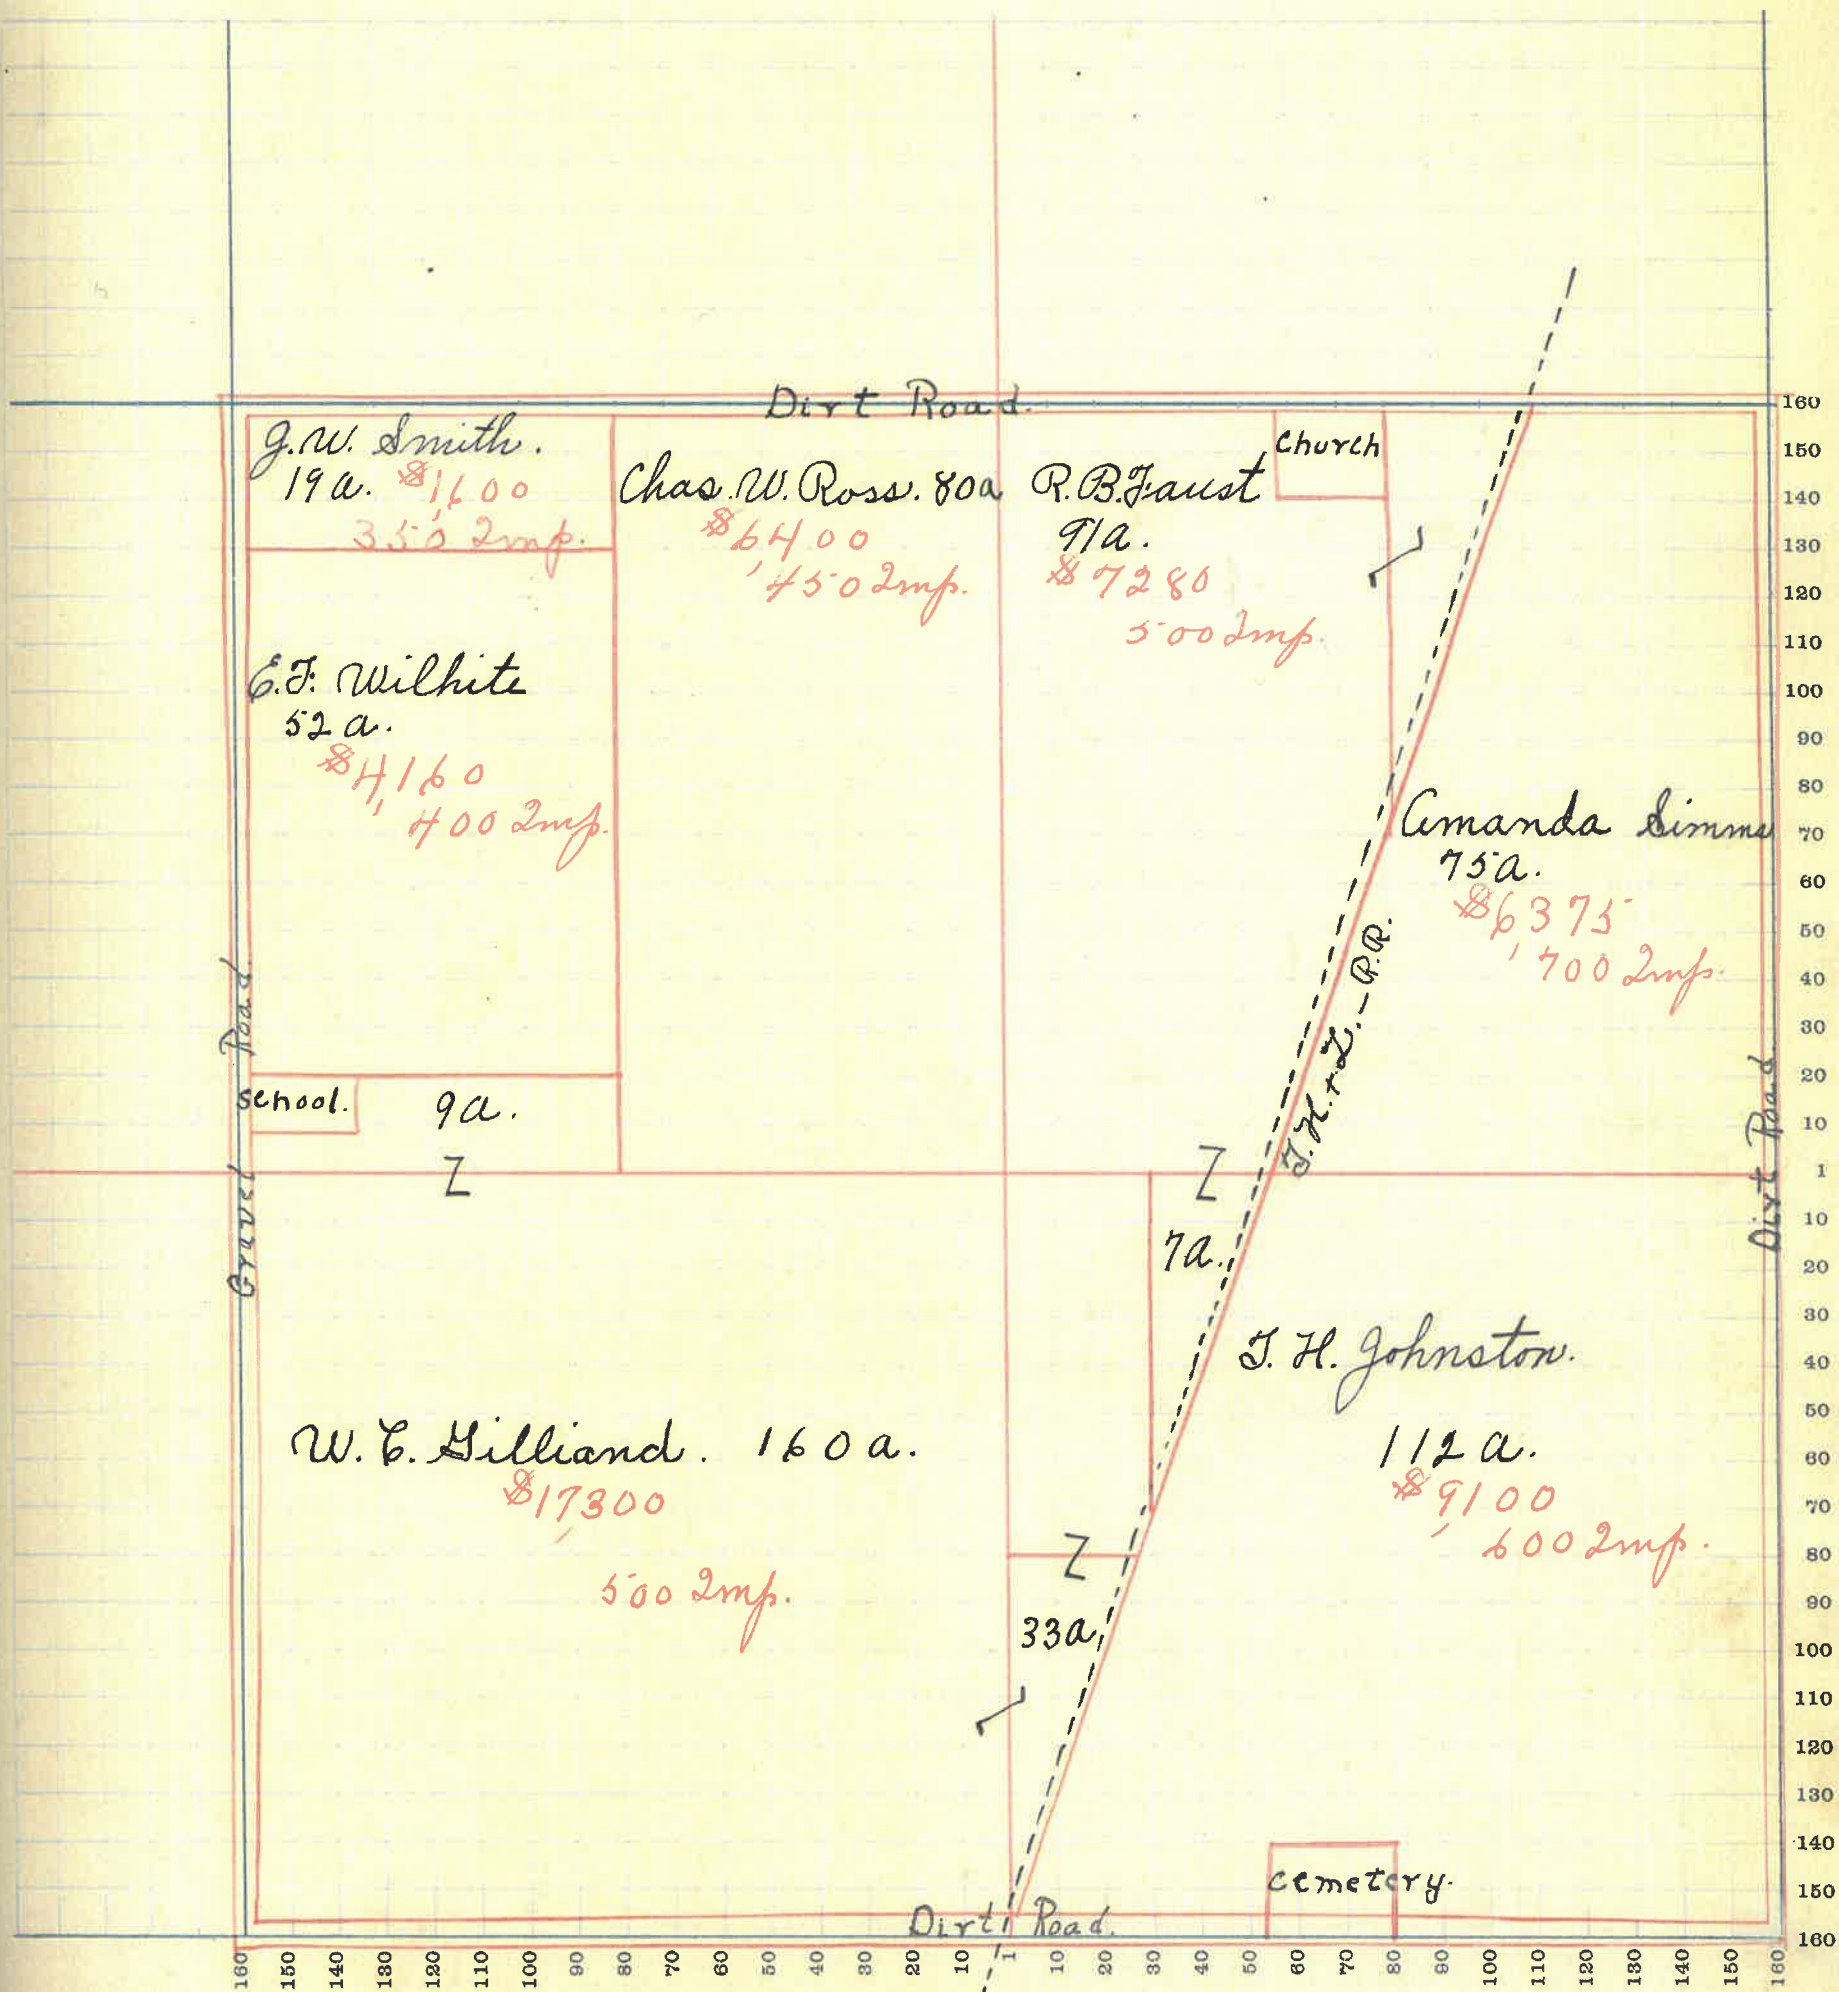 Dirt Road.
G.W. Smith.
19a. $1,600
350 Imp.
Chas. W. Ross. 80a
$6400
450 Imp.
R.B. Faust
91a.
$7280
500 Imp.
Church
E.F. Wilhite
52 a.
$4,160
400 Imp.
Amanda Simms
75a.
$6375
700 Imp.
T.H. + L. - R.R.
Gravel Road
School.
9a.
Z
Z
7a.
Dirt Road
W. C. Gilliand. 160 a.
$17300
500 Imp.
T. H. Johnston.
112 a.
$9100
600 Imp.
Z
33a
Cemetery.
Dirt Road.
160
150
140
130
120
110
100
90
80
70
60
50
40
30
20
10
1
10
20
30
40
50
60
70
80
90
100
110
120
130
140
150
160
160 150 140 130 120 110 100 90 80 70 60 50 40 30 20 10 1 10 20 30 40 50 60 70 80 90 100 110 120 130 140 150 160